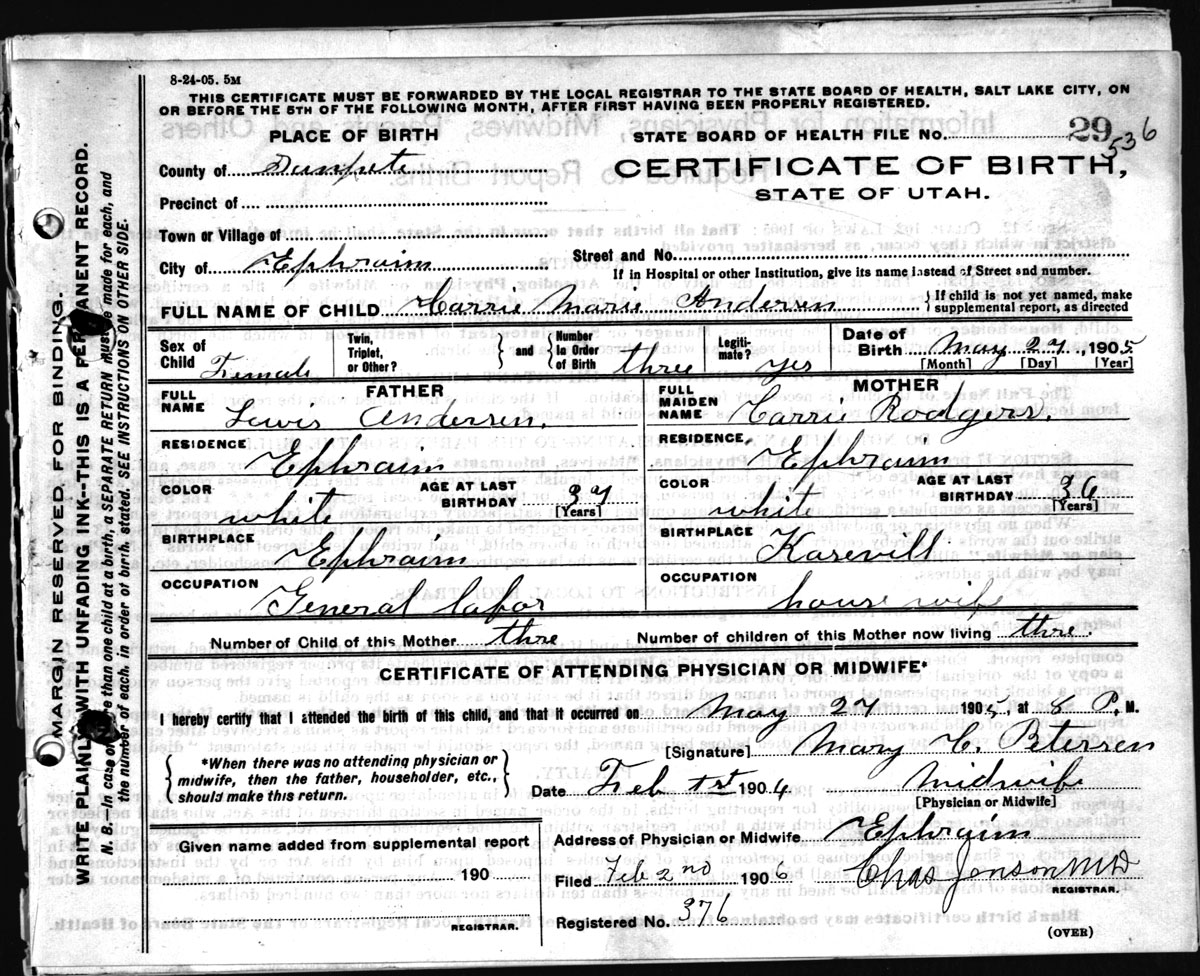 8-24-05. 5M
THIS CERTIFICATE MUST BE FORWARDED BY THE LOCAL REGISTRAR TO THE STATE BOARD OF HEALTH, SALT LAKE CITY, ON
OR BEFORE THE 5TH OF THE FOLLOWING MONTH, AFTER FIRST HAVING BEEN PROPERLY REGISTERED.
PLACE OF BIRTH
STATE BOARD OF HEALTH FILE NO. 29 536
County of Sanpete
CERTIFICATE OF BIRTH,
STATE OF UTAH.
Precinct of
Town or Village of
City of Ephraim
Street and No.
If in Hospital or other Institution, give its name instead of Street and number.
FULL NAME OF CHILD Carrie Marie Andersen
If child is not yet named, make
supplemental report, as directed
Sex of Child Female
Twin, Triplet, or Other?
and
Number in Order of Birth three
Legitimate? yes
Date of Birth May 27, 1905
[Month] [Day] [Year]
FATHER
FULL NAME Lewis Andersen.
RESIDENCE Ephraim
COLOR white
AGE AT LAST BIRTHDAY 37
[Years]
BIRTHPLACE Ephraim
OCCUPATION General labor
MOTHER
FULL MAIDEN NAME Carrie Rodgers.
RESIDENCE Ephraim
COLOR white
AGE AT LAST BIRTHDAY 36
[Years]
BIRTHPLACE Karevill
OCCUPATION house wife
Number of Child of this Mother thre
Number of children of this Mother now living thre.
CERTIFICATE OF ATTENDING PHYSICIAN OR MIDWIFE*
I hereby certify that I attended the birth of this child, and that it occurred on May 27 1905, at 8 P. M.
*When there was no attending physician or
midwife, then the father, householder, etc.,
should make this return.
[Signature] Mary C. Petersen
Date Feb 1st 1906 Midwife
[Physician or Midwife]
Given name added from supplemental report
190
REGISTRAR.
Address of Physician or Midwife Ephraim
Filed Feb 2nd 1906 Chas Jonson MD
REGISTRAR.
Registered No. 376
(OVER)
MARGIN RESERVED FOR BINDING.
WRITE PLAINLY WITH UNFADING INK--THIS IS A PERMANENT RECORD.
N. B.—In case of more than one child at a birth, a SEPARATE RETURN must be made for each, and
the number of each, in order of birth, stated. (SEE INSTRUCTIONS ON OTHER SIDE.